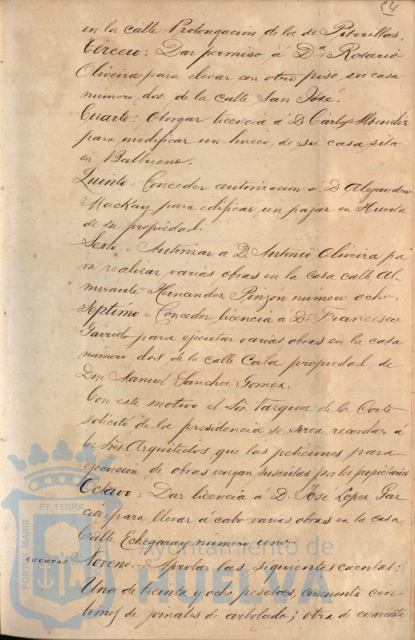 54
en la calle Prolongacion de la de Puterillas.
Tercero: Dar permiso á Dª Rosario
Oliveira para elevar con otro piso, su casa
número dos, de la calle San José.
Cuarto: Otorgar licencia á D. Carlos Mendez
para modificar un hueco, de su casa sita
en Balbueno.
Quinto = Conceder autorización á D. Alejandro
Mackay para edificar un pajar en Huerta
de su propiedad.
Sesto = Autorizar a D. Antonio Oliveira pa
ra realizar varias obras en la casa calle Al-
mirante Hernandez Pinzón número ocho.
Septimo = Conceder licencia á D. Francisco
Garrido para ejecutar varias obras en la casa
número dos de la calle Cala propiedad de
Don Manuel Sanchez Gomez.
Con este motivo el Sr. Vazquez de la Corte
solicitó de la presidencia se sirva recordar á
los Sres. Arquitectos que las peticiones para
ejecucion de obras vengan suscritas por los propietarios
Octavo = Dar licencia á D. José Lopez Gar-
cia para llevar á cabo varias obras en la casa
Calle Echegaray número uno.
cuentas
Noveno = Aprobar las siguientes cuentas:
Una de treinta y ocho pesetas, cincuenta cen-
timos de jornales de arbolado; otra de cuarenta
PORTUS MARIS
ET TERRAE
Ayuntamiento de
HUELVA